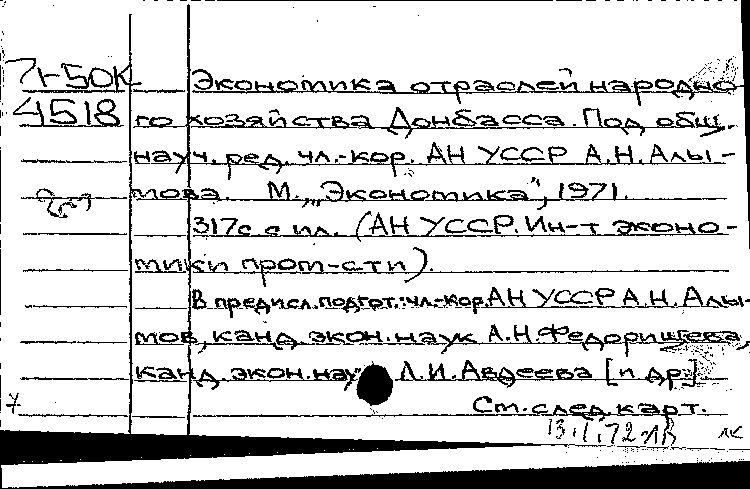 71-50К Экономика отраслей народно-
4518 го хозяйства Донбасса. Под общ.
науч. ред. чл.-кор. АН УССР А.Н. Алы-
мова. М., „Экономика", 1971.
317с. с ил. (АН УССР. Ин-т эконо-
мики пром-сти).
В предисл. подгот.: чл.-кор. АН УССР А.Н. Алы-
мов, канд. экон. наук А.Н. Федорищева,
канд. экон. наук Л.И. Авдеева [и др.]
7 См. след. карт.
13.1.72